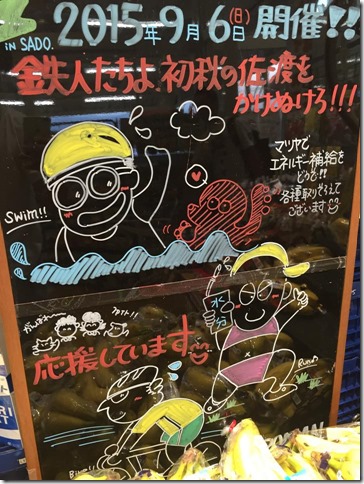 in SADO. 2015年9月6日(日)開催!!
鉄人たちよ、初秋の佐渡を
かけぬけろ!!!
マツヤで
エネルギー補給を
どうぞ!!
各種取りそろえて
ございます
Swim!!
水分
応援しています
Run♪
Bike!!